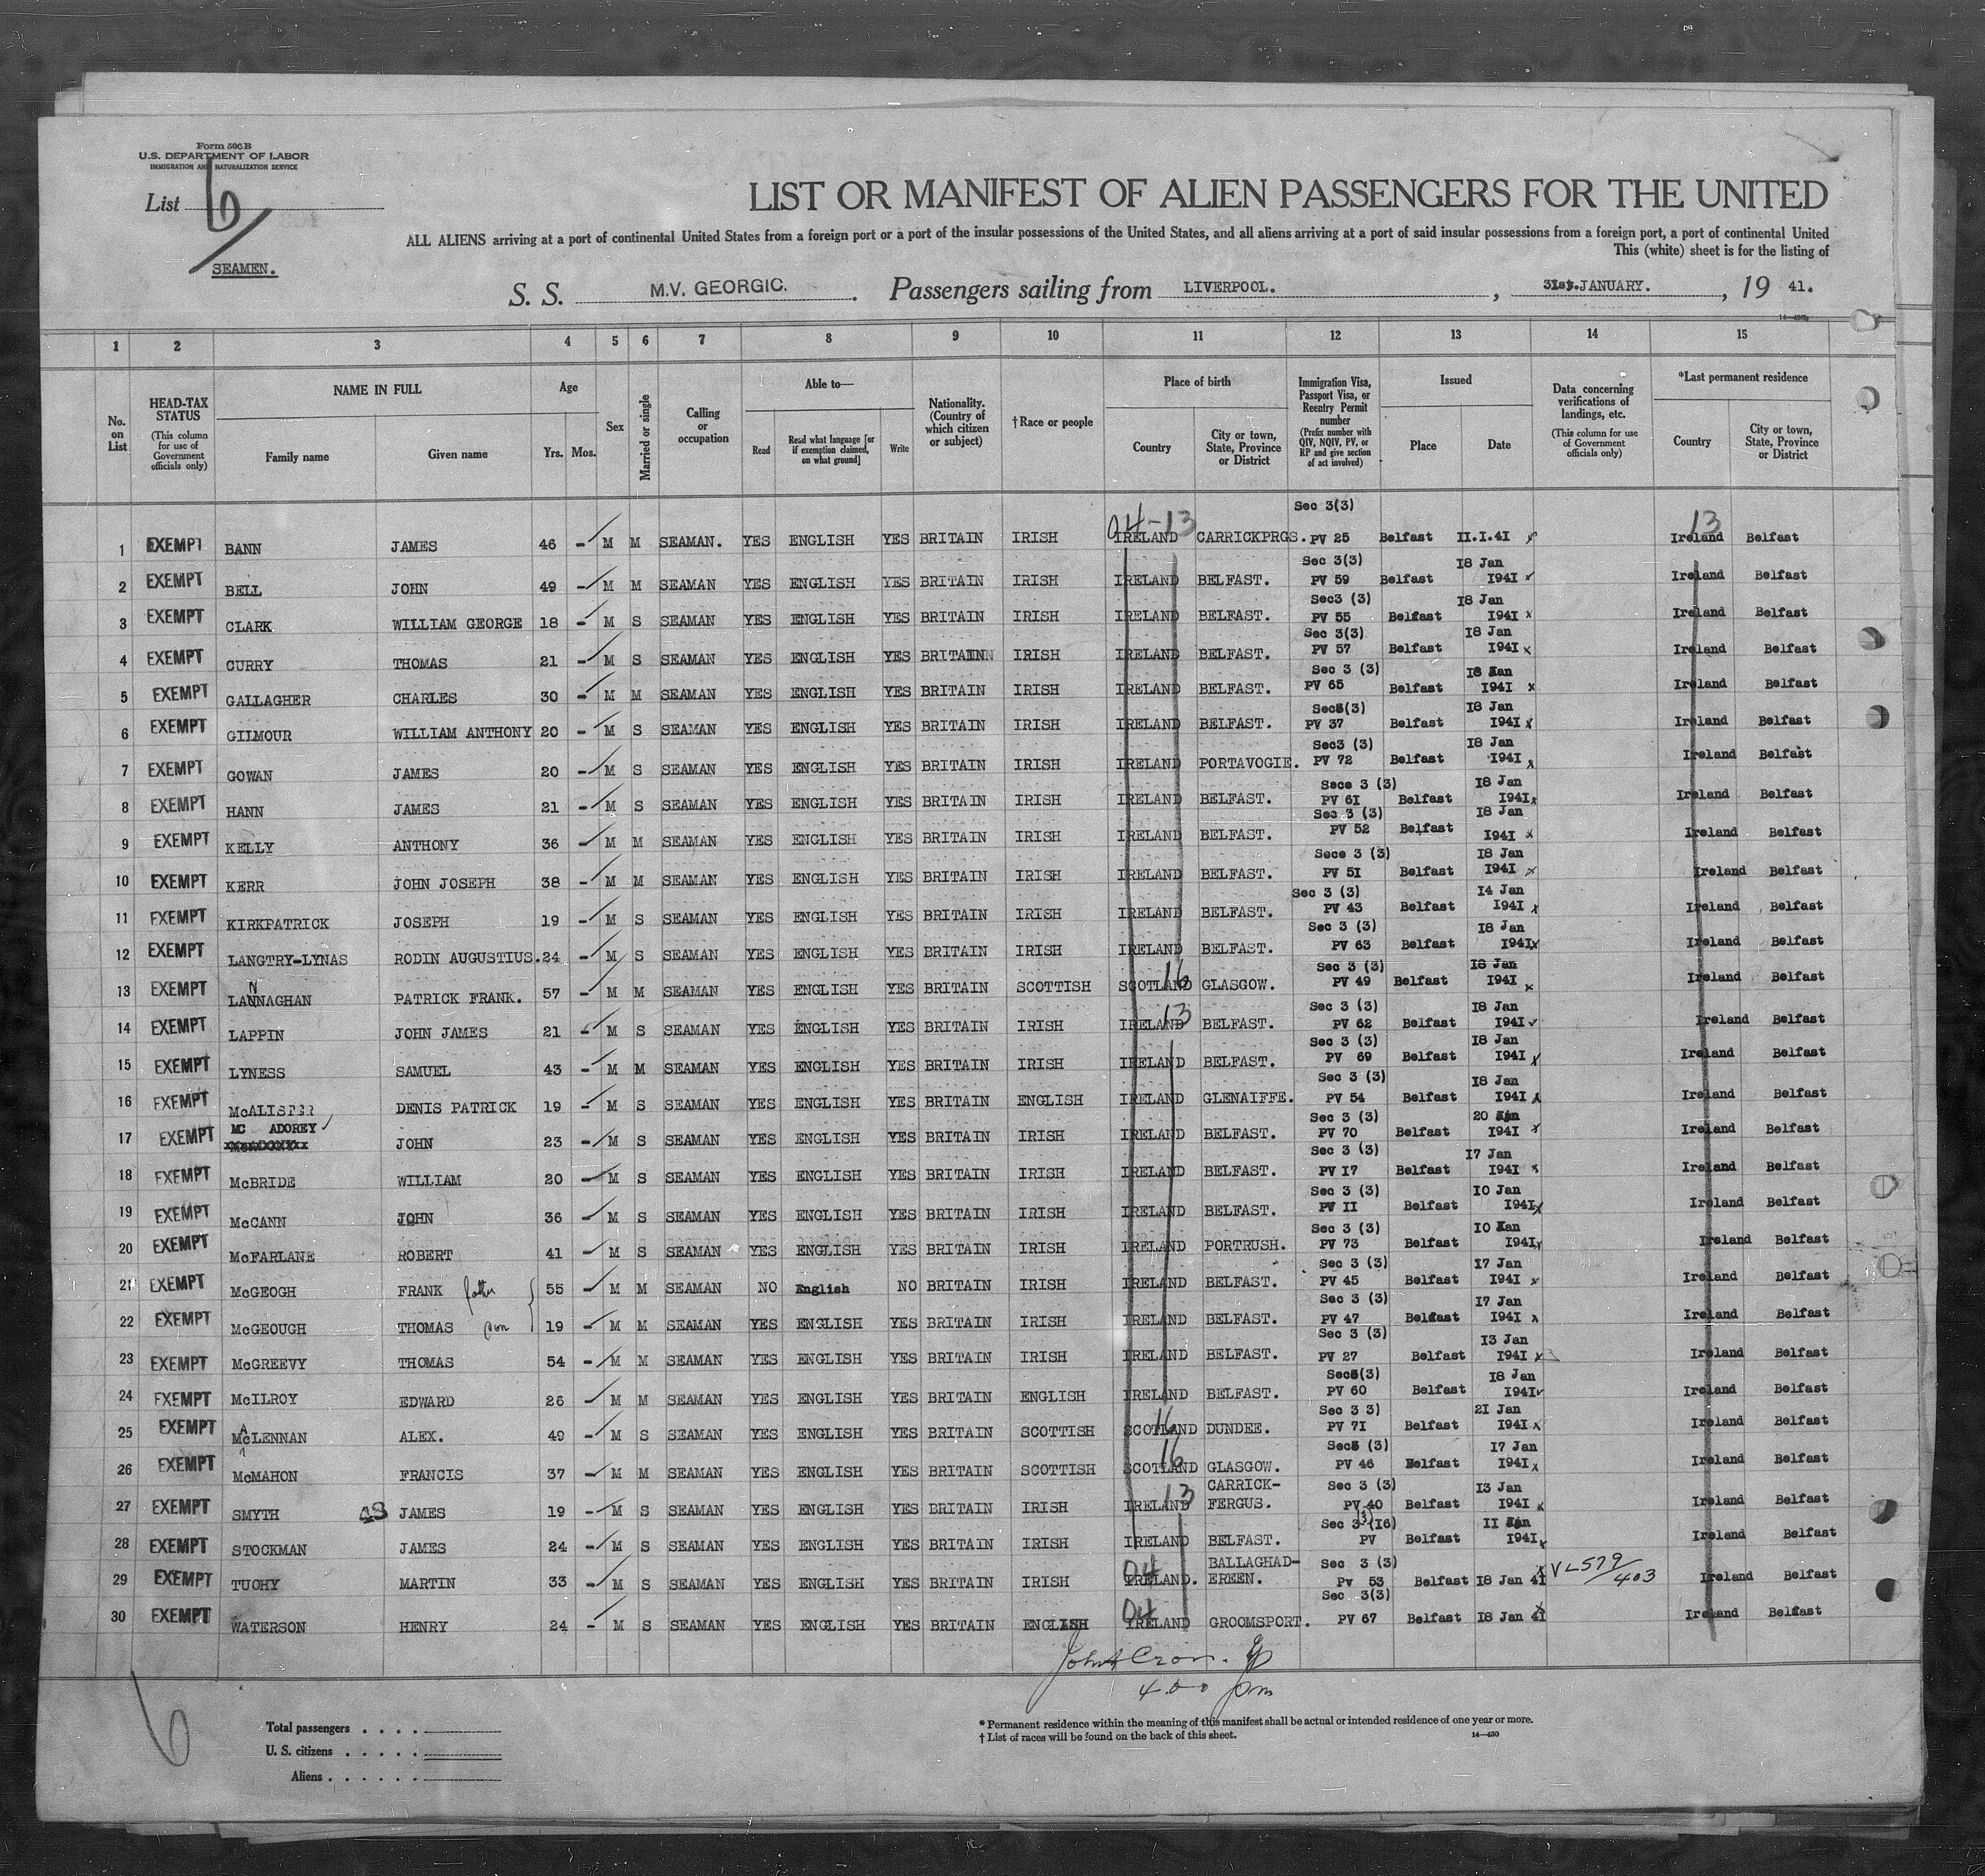 Form 506B
U.S. DEPARTMENT OF LABOR
IMMIGRATION AND NATURALIZATION SERVICE
List 6
SEAMEN.
LIST OR MANIFEST OF ALIEN PASSENGERS FOR THE UNITED
ALL ALIENS arriving at a port of continental United States from a foreign port or a port of the insular possessions of the United States, and all aliens arriving at a port of said insular possessions from a foreign port, a port of continental United
This (white) sheet is for the listing of
S. S. M.V. GEORGIC. Passengers sailing from LIVERPOOL. , 31st. JANUARY. , 19 41.
1 2 3 4 5 6 7 8 9 10 11 12 13 14 15
No. on List
HEAD-TAX STATUS (This column for use of Government officials only)
NAME IN FULL Family name Given name
Age Yrs. Mos.
Sex
Married or single
Calling or occupation
Able to— Read Read what language [or if exemption claimed, on what ground] Write
Nationality. (Country of which citizen or subject)
†Race or people
Place of birth Country City or town, State, Province or District
Immigration Visa, Passport Visa, or Reentry Permit number (Prefix number with QIV, NQIV, PV, or RP and give section of act involved)
Issued Place Date
Data concerning verifications of landings, etc. (This column for use of Government officials only)
*Last permanent residence Country City or town, State, Province or District
04-13 Sec 3(3) 13
1 EXEMPT BANN JAMES 46 - M M SEAMAN. YES ENGLISH YES BRITAIN IRISH IRELAND CARRICKPRGS. PV 25 Belfast II.I.4I Ireland Belfast
Sec 3(3) 18 Jan
2 EXEMPT BELL JOHN 49 - M M SEAMAN YES ENGLISH YES BRITAIN IRISH IRELAND BELFAST. PV 59 Belfast I94I Ireland Belfast
Sec3 (3) 18 Jan
3 EXEMPT CLARK WILLIAM GEORGE 18 - M S SEAMAN YES ENGLISH YES BRITAIN IRISH IRELAND BELFAST. PV 55 Belfast I94I Ireland Belfast
Sec 3(3) 18 Jan
4 EXEMPT CURRY THOMAS 21 - M S SEAMAN YES ENGLISH YES BRITAIN IRISH IRELAND BELFAST. PV 57 Belfast I94I Ireland Belfast
Sec 3 (3) 18 Jan
5 EXEMPT GALLAGHER CHARLES 30 - M M SEAMAN YES ENGLISH YES BRITAIN IRISH IRELAND BELFAST. PV 65 Belfast I94I Ireland Belfast
Sec3(3) 18 Jan
6 EXEMPT GILMOUR WILLIAM ANTHONY 20 - M S SEAMAN YES ENGLISH YES BRITAIN IRISH IRELAND BELFAST. PV 37 Belfast I94I Ireland Belfast
Sec3 (3) 18 Jan
7 EXEMPT GOWAN JAMES 20 - M S SEAMAN YES ENGLISH YES BRITAIN IRISH IRELAND PORTAVOGIE. PV 72 Belfast I94I Ireland Belfast
Sece 3 (3) 18 Jan
8 EXEMPT HANN JAMES 21 - M S SEAMAN YES ENGLISH YES BRITAIN IRISH IRELAND BELFAST. PV 6I Belfast I94I Ireland Belfast
Sec 3 (3) 18 Jan
9 EXEMPT KELLY ANTHONY 36 - M M SEAMAN YES ENGLISH YES BRITAIN IRISH IRELAND BELFAST. PV 52 Belfast I94I Ireland Belfast
Sece 3 (3) 18 Jan
10 EXEMPT KERR JOHN JOSEPH 38 - M M SEAMAN YES ENGLISH YES BRITAIN IRISH IRELAND BELFAST. PV 5I Belfast I94I Ireland Belfast
Sec 3 (3) 14 Jan
11 EXEMPT KIRKPATRICK JOSEPH 19 - M S SEAMAN YES ENGLISH YES BRITAIN IRISH IRELAND BELFAST. PV 43 Belfast I94I Ireland Belfast
Sec 3 (3) 18 Jan
12 EXEMPT LANGTRY-LYNAS RODIN AUGUSTIUS. 24 - M S SEAMAN YES ENGLISH YES BRITAIN IRISH IRELAND BELFAST. PV 63 Belfast I94I Ireland Belfast
16 Sec 3 (3) 18 Jan
13 EXEMPT LANNAGHAN PATRICK FRANK. 57 - M M SEAMAN YES ENGLISH YES BRITAIN SCOTTISH SCOTLAND GLASGOW. PV 49 Belfast I94I Ireland Belfast
13 Sec 3 (3) 18 Jan
14 EXEMPT LAPPIN JOHN JAMES 21 - M S SEAMAN YES ENGLISH YES BRITAIN IRISH IRELAND BELFAST. PV 62 Belfast I94I Ireland Belfast
Sec 3 (3) 18 Jan
15 EXEMPT LYNESS SAMUEL 43 - M M SEAMAN YES ENGLISH YES BRITAIN IRISH IRELAND BELFAST. PV 69 Belfast I94I Ireland Belfast
Sec 3 (3) 18 Jan
16 EXEMPT McALISTER DENIS PATRICK 19 - M S SEAMAN YES ENGLISH YES BRITAIN ENGLISH IRELAND GLENAIFFE. PV 54 Belfast I94I Ireland Belfast
MC ADOREY Sec 3 (3) 20 Jan
17 EXEMPT JOHN 23 - M S SEAMAN YES ENGLISH YES BRITAIN IRISH IRELAND BELFAST. PV 70 Belfast I94I Ireland Belfast
Sec 3 (3) 17 Jan
18 EXEMPT McBRIDE WILLIAM 20 - M S SEAMAN YES ENGLISH YES BRITAIN IRISH IRELAND BELFAST. PV I7 Belfast I94I Ireland Belfast
Sec 3 (3) 10 Jan
19 EXEMPT McCANN JOHN 36 - M S SEAMAN YES ENGLISH YES BRITAIN IRISH IRELAND BELFAST. PV II Belfast I94I Ireland Belfast
Sec 3 (3) 10 Jan
20 EXEMPT McFARLANE ROBERT 41 - M S SEAMAN YES ENGLISH YES BRITAIN IRISH IRELAND PORTRUSH. PV 73 Belfast I94I Ireland Belfast
Sec 3 (3) 17 Jan
21 EXEMPT McGEOGH FRANK father 55 - M M SEAMAN NO English NO BRITAIN IRISH IRELAND BELFAST. PV 45 Belfast I94I Ireland Belfast
Sec 3 (3) 17 Jan
22 EXEMPT McGEOUGH THOMAS son 19 - M M SEAMAN YES ENGLISH YES BRITAIN IRISH IRELAND BELFAST. PV 47 Belfast I94I Ireland Belfast
Sec 3 (3) 13 Jan
23 EXEMPT McGREEVY THOMAS 54 - M M SEAMAN YES ENGLISH YES BRITAIN IRISH IRELAND BELFAST. PV 27 Belfast I94I Ireland Belfast
Sec3(3) 18 Jan
24 EXEMPT McILROY EDWARD 26 - M M SEAMAN YES ENGLISH YES BRITAIN ENGLISH IRELAND BELFAST. PV 60 Belfast I94I Ireland Belfast
A 16 Sec 3 3) 21 Jan
25 EXEMPT McLENNAN ALEX. 49 - M S SEAMAN YES ENGLISH YES BRITAIN SCOTTISH SCOTLAND DUNDEE. PV 7I Belfast I94I Ireland Belfast
16 Sec3 (3) 17 Jan
26 EXEMPT McMAHON FRANCIS 37 - M M SEAMAN YES ENGLISH YES BRITAIN SCOTTISH SCOTLAND GLASGOW. PV 46 Belfast I94I Ireland Belfast
13 CARRICK- Sec 3 (3) 13 Jan
27 EXEMPT SMYTH JAMES 19 - M S SEAMAN YES ENGLISH YES BRITAIN IRISH IRELAND FERGUS. PV 40 Belfast I94I Ireland Belfast
Sec 3 (3) (I6) 11 Jan
28 EXEMPT STOCKMAN JAMES 24 - M S SEAMAN YES ENGLISH YES BRITAIN IRISH IRELAND BELFAST. PV Belfast I94I Ireland Belfast
04 BALLAGHAD- Sec 3 (3)
29 EXEMPT TUOHY MARTIN 33 - M S SEAMAN YES ENGLISH YES BRITAIN IRISH IRELAND. EREEN. Pv 53 Belfast I8 Jan 4I VL 579/403 Ireland Belfast
04 Sec 3(3)
30 EXEMPT WATERSON HENRY 24 - M S SEAMAN YES ENGLISH YES BRITAIN ENGLISH IRELAND GROOMSPORT. PV 67 Belfast I8 Jan 4I Ireland Belfast
4.00 pm
6
Total passengers . . . .
U. S. citizens . . . . .
Aliens . . . . . .
* Permanent residence within the meaning of this manifest shall be actual or intended residence of one year or more.
† List of races will be found on the back of this sheet.
14—430